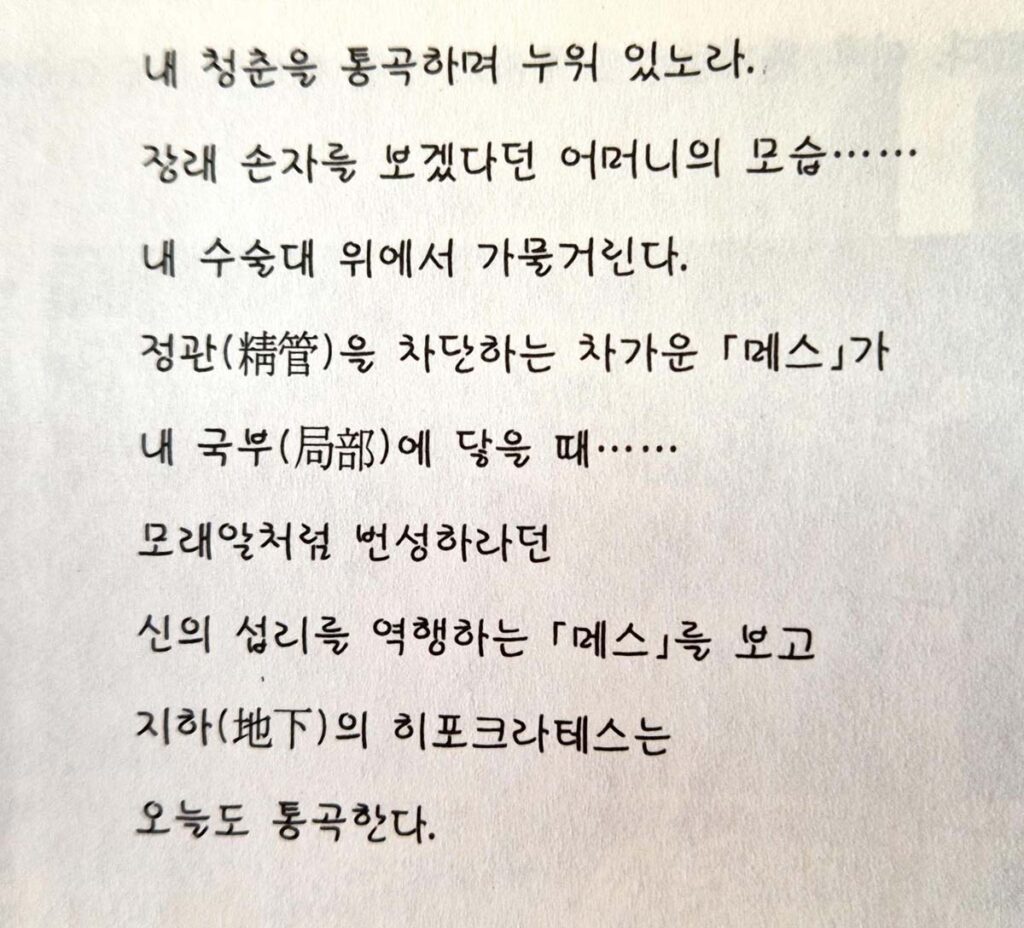 내 청춘을 통곡하며 누워 있노라.
장래 손자를 보겠다던 어머니의 모습……
내 수술대 위에서 가물거린다.
정관(精管)을 차단하는 차가운 「메스」가
내 국부(局部)에 닿을 때……
모래알처럼 번성하라던
신의 섭리를 역행하는 「메스」를 보고
지하(地下)의 히포크라테스는
오늘도 통곡한다.